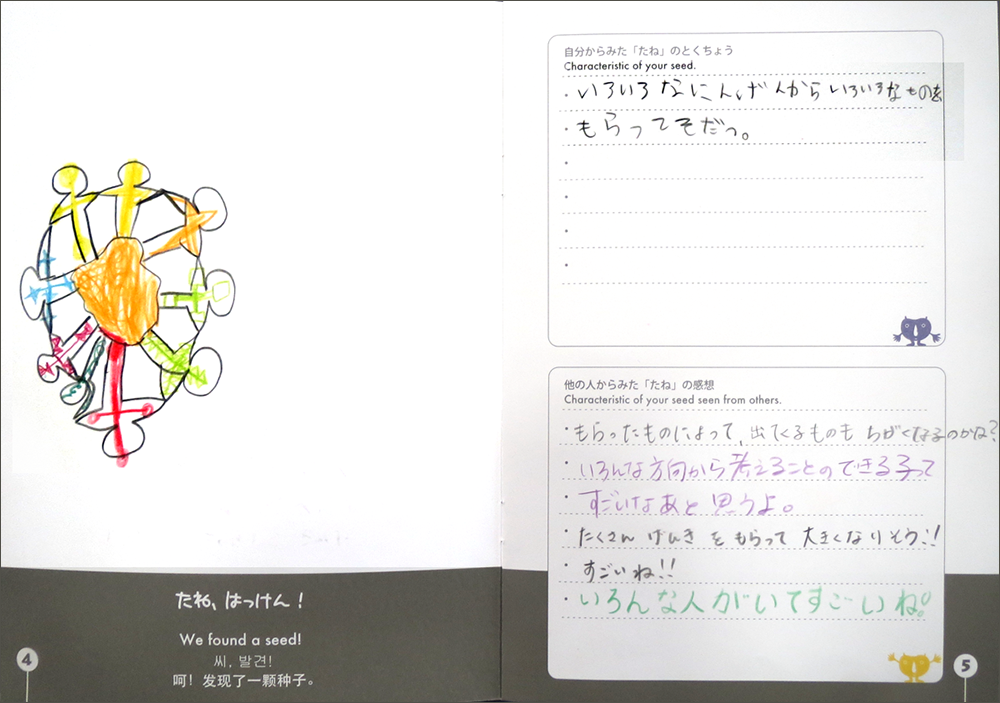 たね、はっけん！
We found a seed!
씨, 발견!
呵！发现了一颗种子。
4
自分からみた「たね」のとくちょう
Characteristic of your seed.
・いろいろなにんげん人からいろいろなものを
・もらってそだつ。
他の人からみた「たね」の感想
Characteristic of your seed seen from others.
・もらったものによって、出てくるものもちがくなるのかな？
・いろんな方向から考えることのできる子って
・すごいなあと思うよ。
・たくさんげんきをもらって大きくなりそう!!
・すごいね!!
・いろんな人がいてすごいね。
5